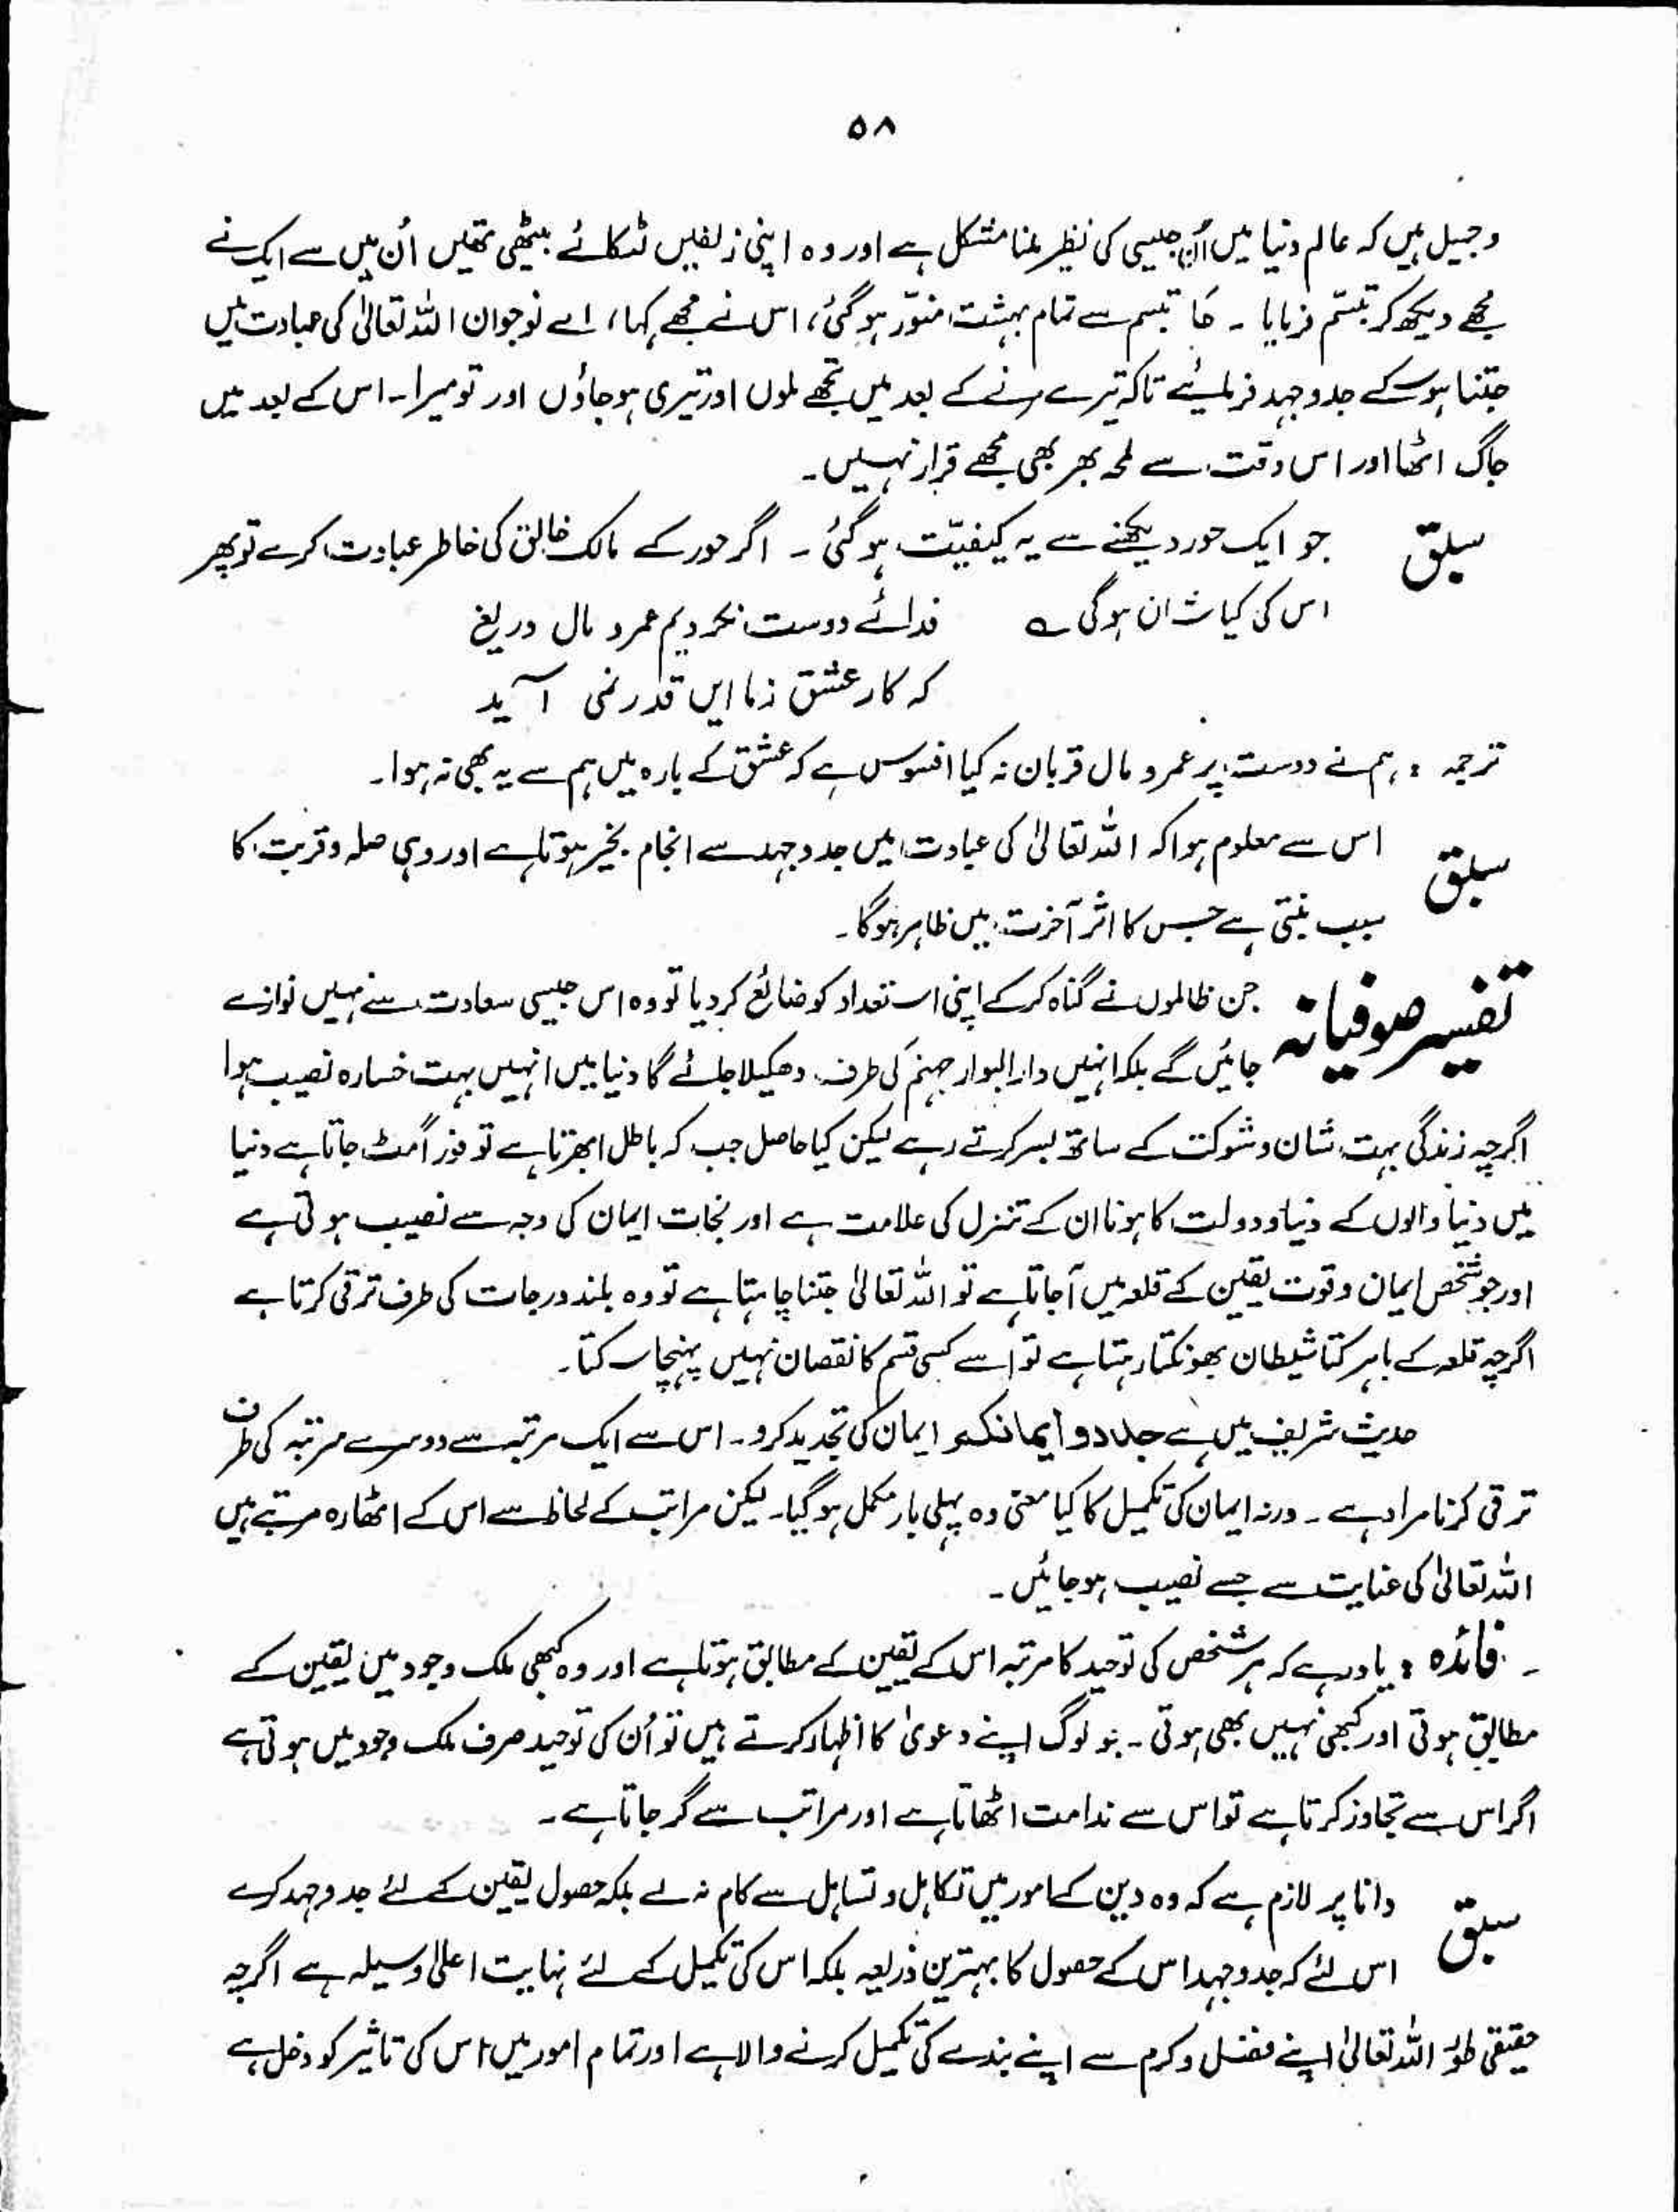 ۵۸
وجمیل ہیں کہ عالم دنیا میں اُن جیسی کی نظیر ملنا مشکل ہے اور وہ اپنی زلفیں لٹکائے بیٹھی تھیں اُن میں سے ایک نے
مجھے دیکھ کر تبسّم فرمایا ۔ تبسم سے تمام بہشت منوّر ہوگئی، اس نے مجھے کہا، اے نوجوان اللہ تعالیٰ کی عبادت میں
جتنا ہوسکے جدوجہد فرمائیے تاکہ تیرے مرنے کے بعد میں تجھے ملوں اور تیری ہوجاؤں اور تو میرا۔ اس کے بعد میں
جاگ اٹھا اور اس وقت سے لمحہ بھر بھی مجھے قرار نہیں۔
سبق جو ایک حور دیکھنے سے یہ کیفیّت ہوگئی ۔ اگر حور کے مالک خالق کی خاطر عبادت کرے تو پھر
اس کی کیا شان ہوگی ؎ فدائے دوست نکردیم عمر و مال دریغ
کہ کار عشق زما ایں قدر نمی آید
ترجمہ : ہم نے دوست پر عمر و مال قربان نہ کیا افسوس ہے کہ عشق کے بارہ میں ہم سے یہ بھی نہ ہوا۔
سبق اس سے معلوم ہوا کہ اللہ تعالیٰ کی عبادت میں جدوجہد سے انجام بخیر ہوتا ہے اور وہی صلہ و قربت کا
سبب بنتی ہے جس کا اثر آخرت میں ظاہر ہوگا۔
تفسیر صوفیانہ جن ظالموں نے گناہ کرکے اپنی استعداد کو ضائع کر دیا تو وہ اس جیسی سعادت سے نہیں نوازے
جائیں گے بلکہ انہیں دار البوار جہنم کی طرف دھکیلا جائے گا دنیا میں انہیں بہت خسارہ نصیب ہوا
اگرچہ زندگی بہت شان و شوکت کے ساتھ بسر کرتے رہے لیکن کیا حاصل جب کہ باطل ابھرتا ہے تو فوراً مٹ جاتا ہے دنیا
میں دنیا والوں کے دنیا و دولت کا ہونا ان کے تنزل کی علامت ہے اور نجات ایمان کی وجہ سے نصیب ہوتی ہے
اور جو شخص ایمان و قوت یقین کے قلعہ میں آجاتا ہے تو اللہ تعالیٰ جتنا چاہتا ہے تو وہ بلند درجات کی طرف ترقی کرتا ہے
اگرچہ قلعہ کے باہر کتا شیطان بھونکتا رہتا ہے تو اسے کسی قسم کا نقصان نہیں پہنچا سکتا۔
حدیث شریف میں ہے جددوا ایمانکم ایمان کی تجدید کرو۔ اس سے ایک مرتبہ سے دوسرے مرتبہ کی طرف
ترقی کرنا مراد ہے ۔ ورنہ ایمان کی تکمیل کا کیا معنی وہ پہلی بار مکمل ہوگیا۔ لیکن مراتب کے لحاظ سے اس کے اٹھارہ مرتبے ہیں
اللہ تعالیٰ کی عنایت سے جسے نصیب ہوجائیں ۔
فائدہ : یاد رہے کہ ہر شخص کی توحید کا مرتبہ اس کے یقین کے مطابق ہوتا ہے اور وہ کبھی ملک وجود میں یقین کے
مطابق ہوتی اور کبھی نہیں بھی ہوتی ۔ جو لوگ اپنے دعویٰ کا اظہار کرتے ہیں تو اُن کی توحید صرف ملک وجود میں ہوتی ہے
اگر اس سے تجاوز کرتا ہے تو اس سے ندامت اٹھاتا ہے اور مراتب سے گر جاتا ہے ۔
سبق دانا پر لازم ہے کہ وہ دین کے امور میں تکاہل و تساہل سے کام نہ لے بلکہ حصول یقین کے لئے جدوجہد کرے
اس لئے کہ جدوجہد اس کے حصول کا بہترین ذریعہ بلکہ اس کی تکمیل کے لئے نہایت اعلیٰ وسیلہ ہے اگرچہ
حقیقی طور اللہ تعالیٰ اپنے فضل و کرم سے اپنے بندے کی تکمیل کرنے والا ہے اور تمام امور میں اس کی تاثیر کو دخل ہے